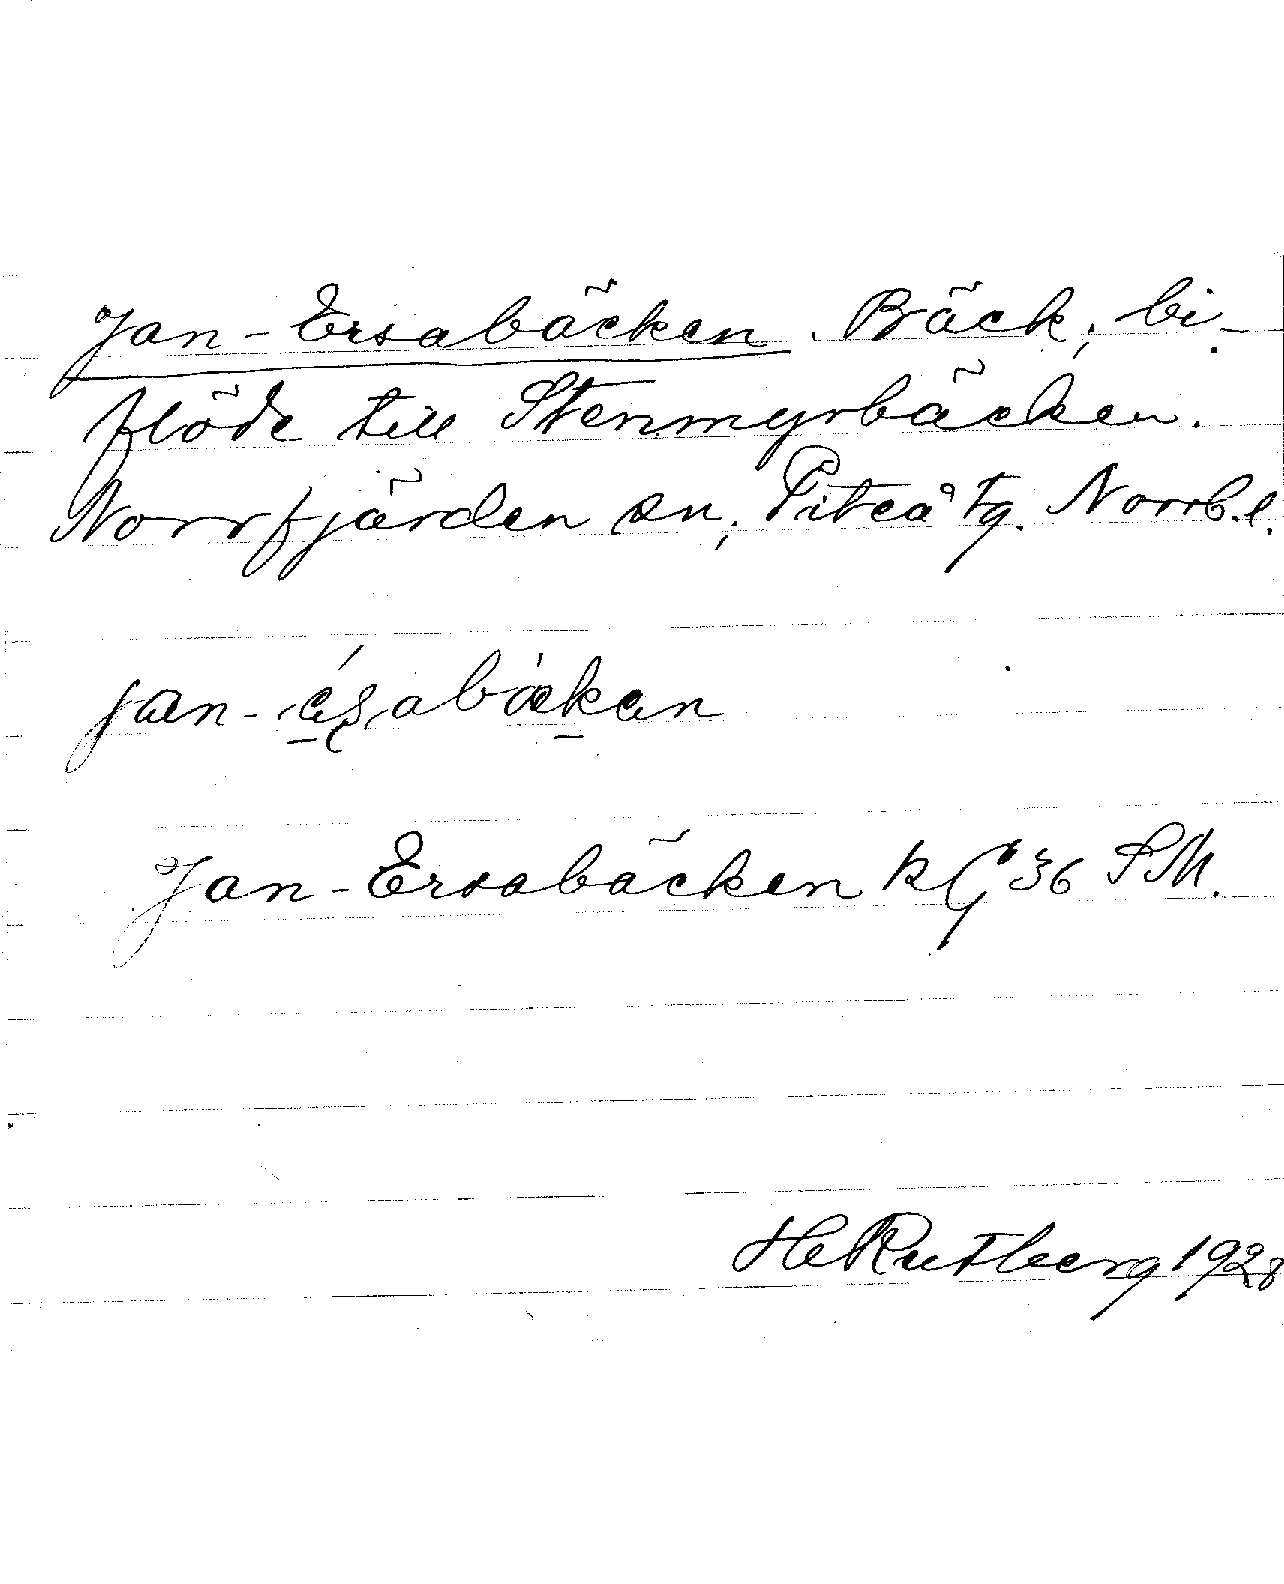 Jan-Ersabäcken. Bäck, bi-
flöde till Stenmyrbäcken.
Norrfjärden sn, Piteå tg. Norrb.l.
jan-ésabäkən
Jan-Ersabäcken kG 36 SM.
H Rutberg 1928